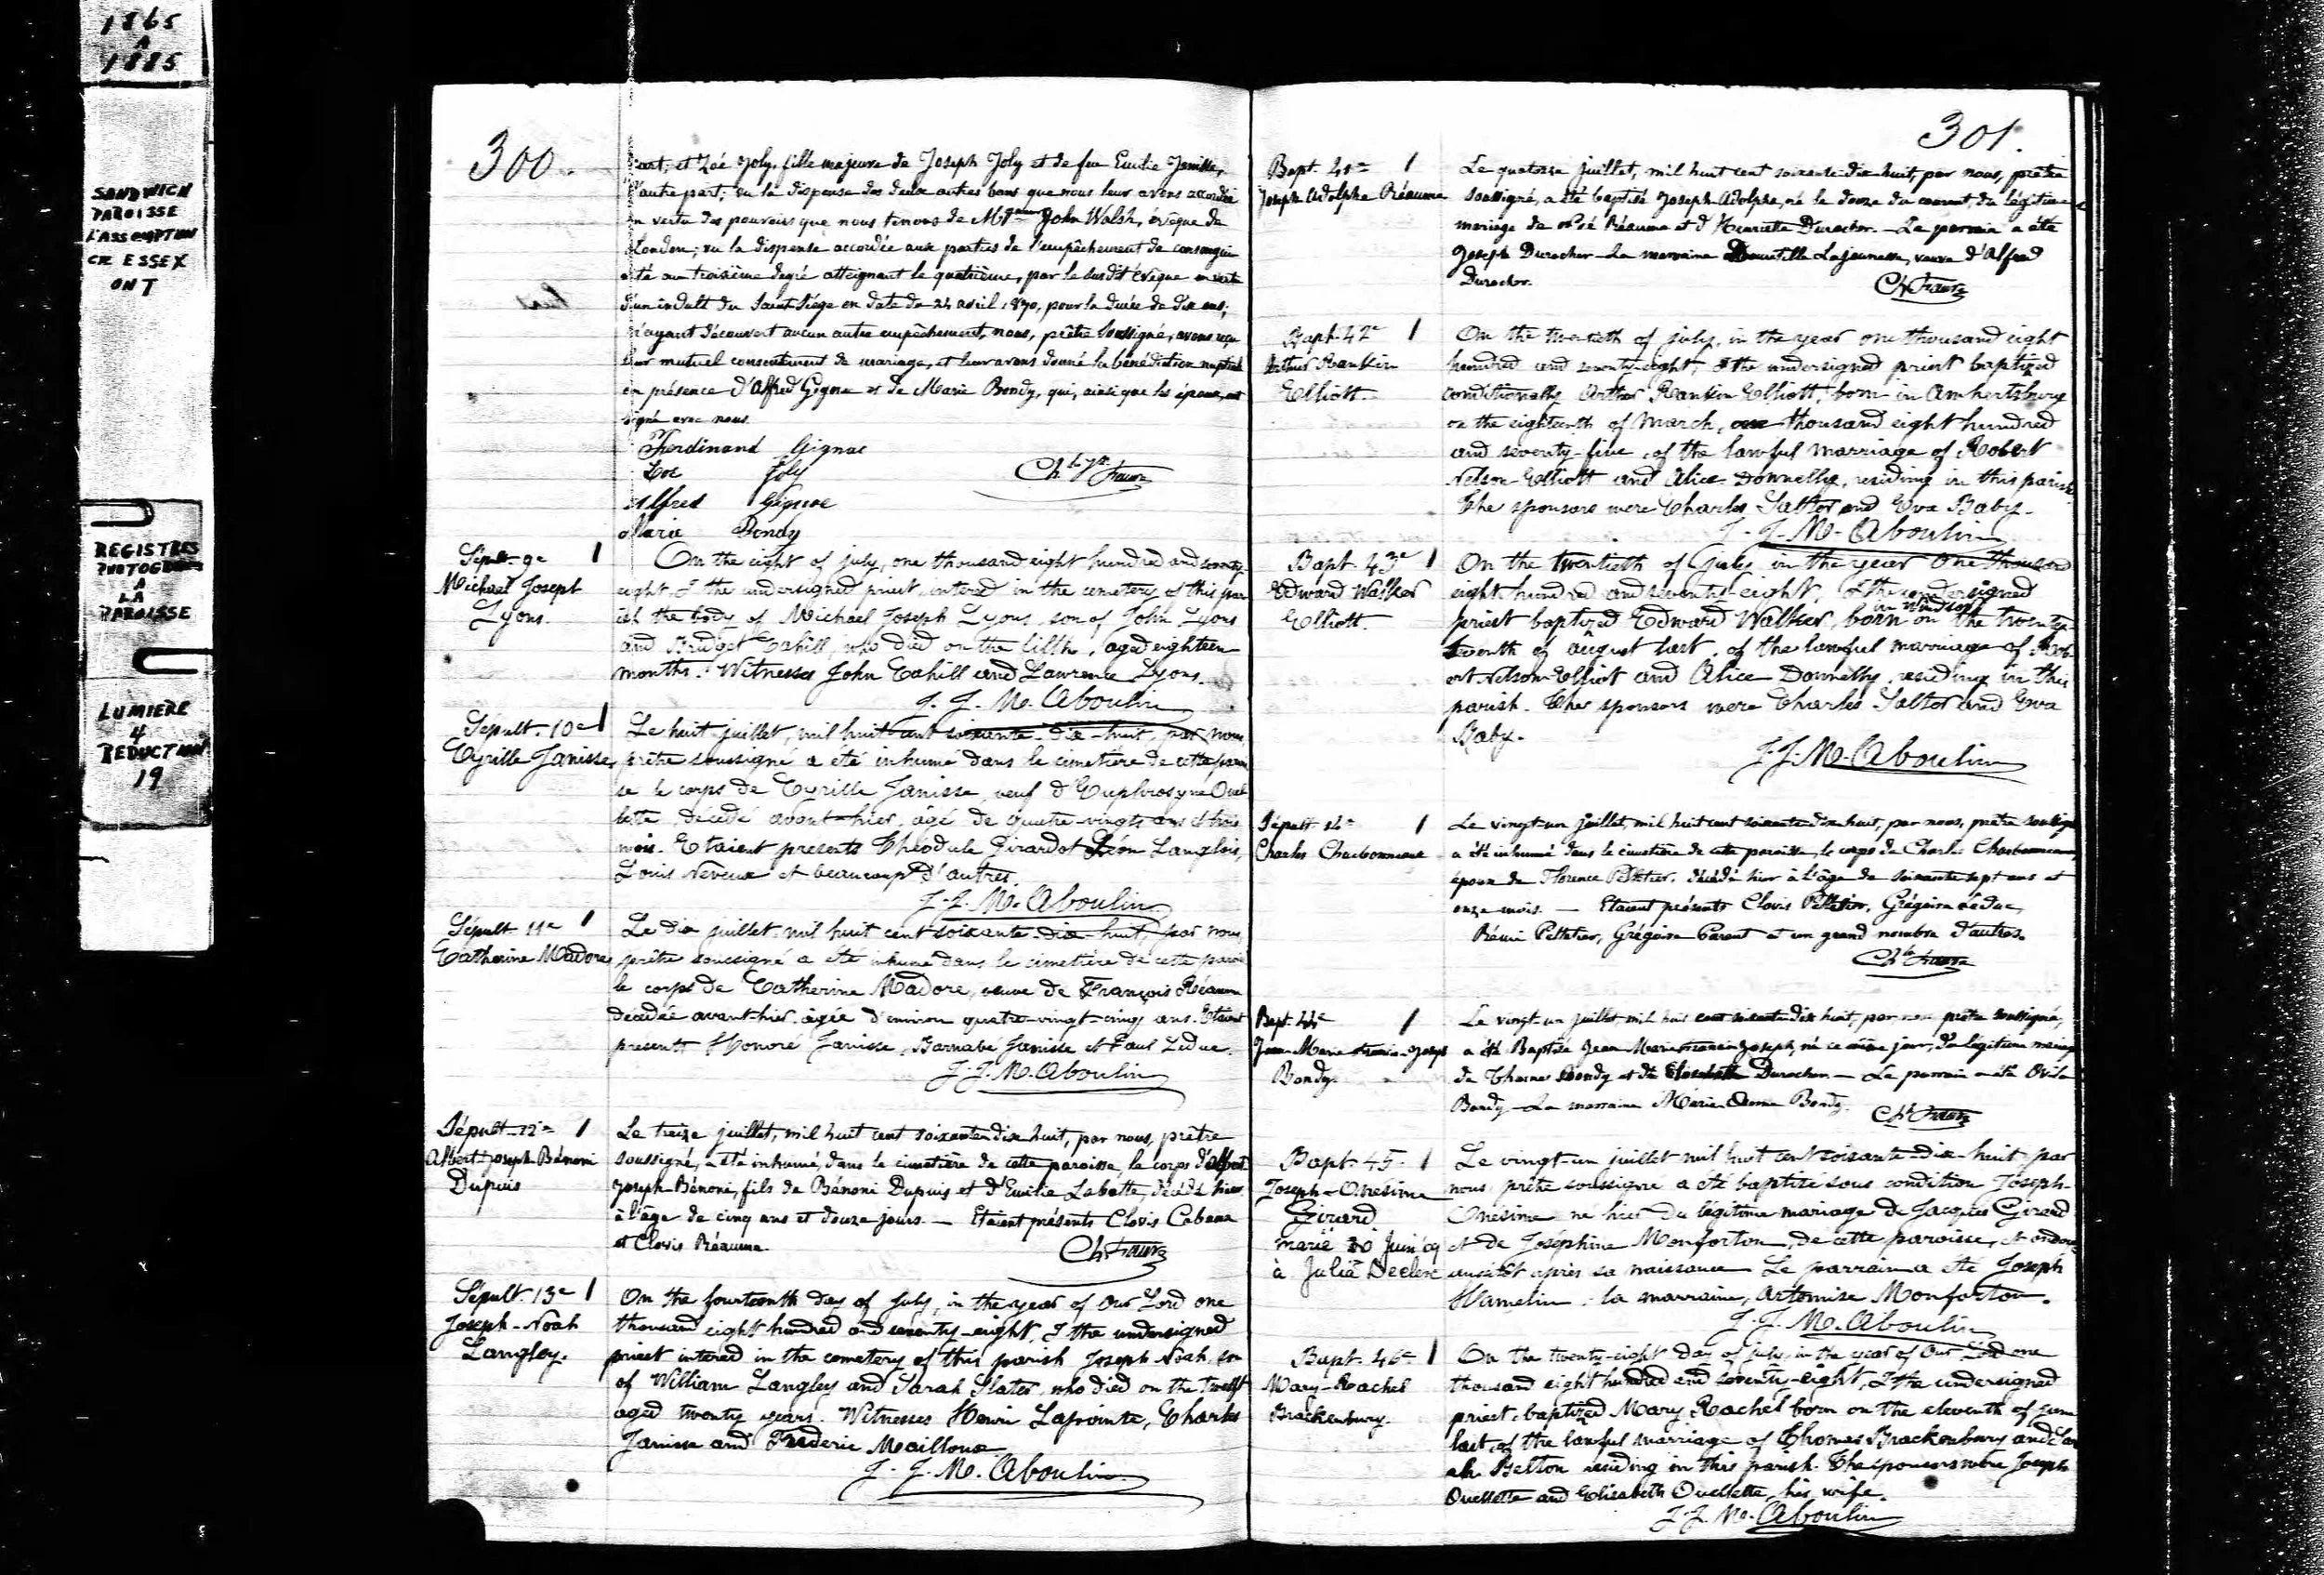 1865
A
1885
SANDWICH
PAROISSE
L'ASSOMPTION
CR ESSEX
ONT
REGISTRES
PHOTOG
A
LA
PAROISSE
LUMIERE
4
REDUCTION
19
300.
part, et Zoé Joly, fille majeure de Joseph Joly et de feu Emilie Janisse,
d'autre part; vu la dispense des deux autres bans que nous leur avons accordée
en vertu des pouvoirs que nous tenons de Mgr John Walsh, évêque de
London; vu la dispense accordée aux parties de l'empêchement de consangui
nité au troisième degré atteignant le quatrième, par le susdit évêque en vertu
d'un indult du Saint Siège en date du 24 avril 1870, pour la durée de dix ans;
n'ayant découvert aucun autre empêchement, nous, prêtre soussigné, avons reçu
leur mutuel consentement de mariage, et leur avons donné la bénédiction nuptiale
en présence d'Alfred Gignac et de Marie Bondy, qui, ainsi que les époux, ont
signé avec nous.
Ferdinand Gignac
Zoe Joly
Alfred Gignac
Marie Bondy
Sépult. 9e
Michael Joseph
Lyons.
On the eight of july, one thousand eight hundred and seventy
eight, I the undersigned priest, intered in the cemetery of this par
ish the body of Michael Joseph Lyons, son of John Lyons
and Bridget Cahill, who died on the fifth, aged eighteen
months. Witnesses John Cahill and Lawrence Lyons.
J. J. M. Aboulin
Sépult. 10e
Cyrille Janisse,
Le huit juillet, mil huit cent soixante-dix-huit, par nous
prêtre soussigné a été inhumé dans le cimetière de cette parois
se le corps de Cyrille Janisse, veuf d'Euphrosyne Ouel
lette, décédé avant-hier, âgé de quatre-vingts ans et trois
mois. Etaient presents Théodule Girardot, Léon Langlois,
Louis Neveux et beaucoup d'autres.
J. J. M. Aboulin
Sépult. 11e
Catherine Madore
Le dix juillet, mil huit cent soixante-dix-huit, par nous,
prêtre soussigné a été inhumé dans le cimetière de cette parois
le corps de Catherine Madore, veuve de François Réaume
décédée avant-hier, âgée d'environ quatre-vingt-cinq ans. Etaient
presents Honoré Janisse, Barnabé Janisse et Paul Leduc.
J. J. M. Aboulin
Sépult. 12e
Albert-Joseph Bénoni
Dupuis
Le treize juillet, mil huit cent soixante dix huit, par nous, prêtre
soussigné, a été inhumé, dans le cimetière de cette paroisse, le corps d'Albert
Joseph-Bénoni, fils de Bénoni Dupuis et d'Emilie Labutte, décédé hier
à l'âge de cinq ans et douze jours. — Etaient présents Clovis Cabana
et Clovis Réaume.
Sépult. 13e
Joseph-Noah
Langley.
On the fourteenth day of July, in the year of Our Lord one
thousand eight hundred and seventy-eight, I the undersigned
priest intered in the cemetery of this parish Joseph Noah, son
of William Langley and Sarah Slater, who died on the twelft
aged twenty years. Witnesses Henri Lapointe, Charles
Janisse and Frederic Mailloux.
J. J. M. Aboulin
301.
Bapt. 41e
Joseph Adolphe Réaume
Le quatorze juillet, mil huit cent soixante-dix-huit, par nous, prêtre
soussigné, a été baptisé Joseph Adolphe, né le douze du courant, du légitime
mariage de Réaume et d'Henriette Durocher. — Le parrain a été
Joseph Durocher — La marraine Lajeunesse, veuve d'Alfred
Durocher.
Bapt. 42e
Arthur Rankin
Elliott.
On the twentieth of july, in the year one thousand eight
hundred and seventy-eight, I the undersigned priest baptized
conditionally Arthur Rankin Elliott, born in Amhertsburg
on the eighteenth of March, one thousand eight hundred
and seventy-five, of the lawful marriage of Robert
Nelson Elliott and Alice Donnelly, residing in this parish.
The sponsors were Charles Salter and Eva Baby.
J. J. M. Aboulin
Bapt. 43e
Edward Walker
Elliott.
On the twentieth of July in the year One thousand
eight hundred and seventy-eight, I the undersigned
in Windsor
priest baptized Edward Walker, born on the twenty
of august last, of the lawful marriage of Rob
ert Nelson Elliot and Alice Donnelly, residing in this
parish. The sponsors were Charles Salter and Eva
Baby.
J. J. M. Aboulin
Sépult. 14e
Charles Charbonneau
Le vingt-un juillet, mil huit cent soixante dix huit, par nous, prêtre soussigné
a été inhumé dans le cimetière de cette paroisse, le corps de Charles Charbonneau,
époux de Florence Pelletier, décédé hier à l'âge de soixante sept ans et
onze mois. — Etaient présents Clovis Pelletier, Grégoire Leduc,
Rémi Pelletier, Grégoire Parent et un grand nombre d'autres.
Bapt. 44e
Jean-Marie-Francis-Joseph
Bondy.
Le vingt-un juillet mil huit cent soixante dix huit, par nous prêtre soussigné,
a été Baptisé Jean Marie Francis Joseph, né ce même jour, du légitime mariage
de Thomas Bondy et de Elisabeth Durocher — Le parrain a été Ovila
Bondy — La marraine Marie Bondy.
Bapt. 45.
Joseph-Onésime
Girard
marié 20 Juin 09
à Julia Declerc
Le vingt-un juillet mil huit cent soixante-dix-huit par
nous prêtre soussigné a été baptisé sous condition Joseph-
Onésime né hier du légitime mariage de Jacques Girard
et de Joséphine Monforton, de cette paroisse, et ondoyé
aussitôt après sa naissance. Le parrain a été Joseph
Hamelin, la marraine, Artemise Monforton.
J. J. M. Aboulin
Bapt. 46e
Mary-Rachel
Brackenbury.
On the twenty-eight day of july, in the year of Our Lord one
thousand eight hundred and seventy-eight, I the undersigned
priest, baptized Mary Rachel born on the eleventh of june
last, of the lawful marriage of Thomas Brackenbury and Sar
ah Belton residing in this parish. The sponsors were Joseph
Ouellette and Elisabeth Ouellette, his wife.
J. J. M. Aboulin